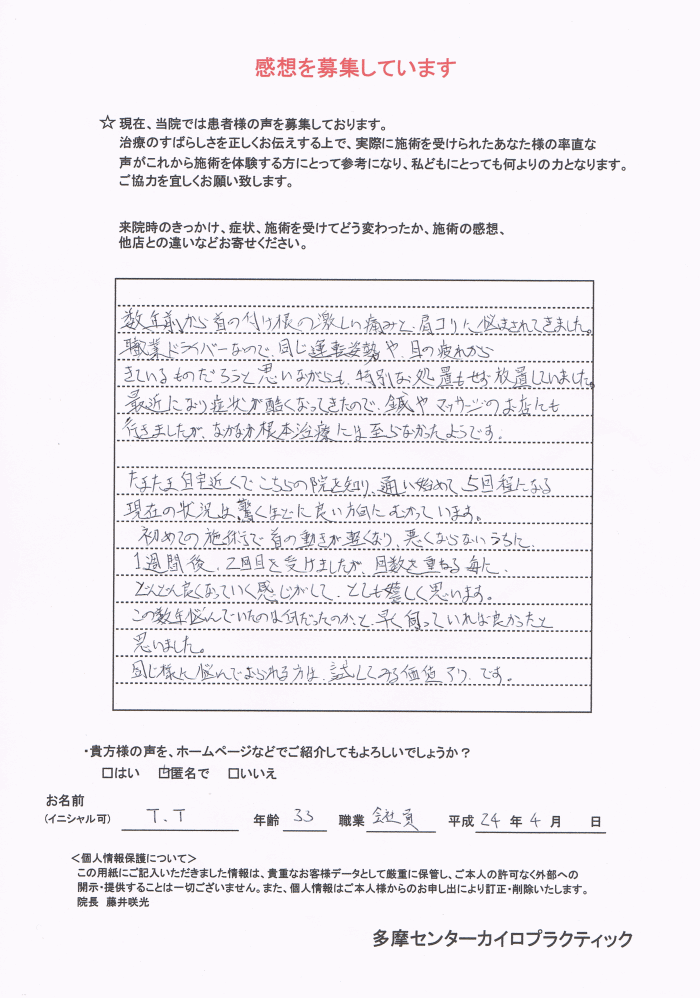 感想を募集しています
☆ 現在、当院では患者様の声を募集しております。
治療のすばらしさを正しくお伝えする上で、実際に施術を受けられたあなた様の率直な
声がこれから施術を体験する方にとって参考になり、私どもにとっても何よりの力となります。
ご協力を宜しくお願い致します。
来院時のきっかけ、症状、施術を受けてどう変わったか、施術の感想、
他店との違いなどお寄せください。
数年前から首の付け根の激しい痛みと、肩コリに悩まされてきました。
職業ドライバーなので、同じ運転姿勢や、目の疲れから
きているものだろうと思いながらも、特別な処置もせず放置していました。
最近になり症状が酷くなってきたので、鍼やマッサージのお店にも
行きましたが、なかなか根本治療には至らなかったようです。
たまたま自宅近くでこちらの院を知り、通い始めて5回程になる
現在の状況は驚くほどに良い方向にむかっています。
初めての施術で首の動きが軽くなり、悪くならないうちに、
1週間後、2回目を受けましたが、回数を重ねる毎に、
どんどん良くなっていく感じがして、とても嬉しく思います。
この数年悩んでいたのは何だったのかと、早く伺っていれば良かったと
思いました。
同じ様に悩んでおられる方は、試してみる価値アリ、です。
・貴方様の声を、ホームページなどでご紹介してもよろしいでしょうか？
□はい ☑匿名で □いいえ
お名前
(イニシャル可) T.T 年齢 33 職業 会社員 平成 24 年 4 月 日
＜個人情報保護について＞
この用紙にご記入いただきました情報は、貴重なお客様データとして厳重に保管し、ご本人の許可なく外部への
開示・提供することは一切ございません。また、個人情報はご本人様からのお申し出により訂正・削除いたします。
院長 藤井咲光
多摩センターカイロプラクティック